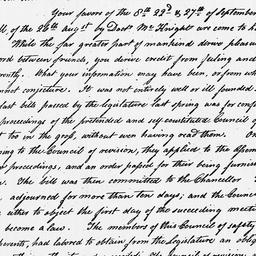 Your favors of the 8th 22d & 27th of September
ll of the 26th augst by Doctr Mc Knight are come to h
While the far greater part of mankind drive pleasu
nd between punch, you derive credit from feeling and
rently. What your information may have been, or from wh
nnot conjecture. It was not entirely well or ill founded.
last bills passed by the legislature last spring was for conf
proceedings of the pretended and self constituted Council of
t too in the gross, without even having read them. On
ing to the Council of revision, they applied to the assem
r proceedings, and an order passed for their being furnish
n. The bill was then committed to the Chancellor
adjourned for more than ten days, and the Counc
either to object the first day of the succeeding meeti
become a law. The members of this Council of safety
prevents, had labored to obtain from the legislature an obli